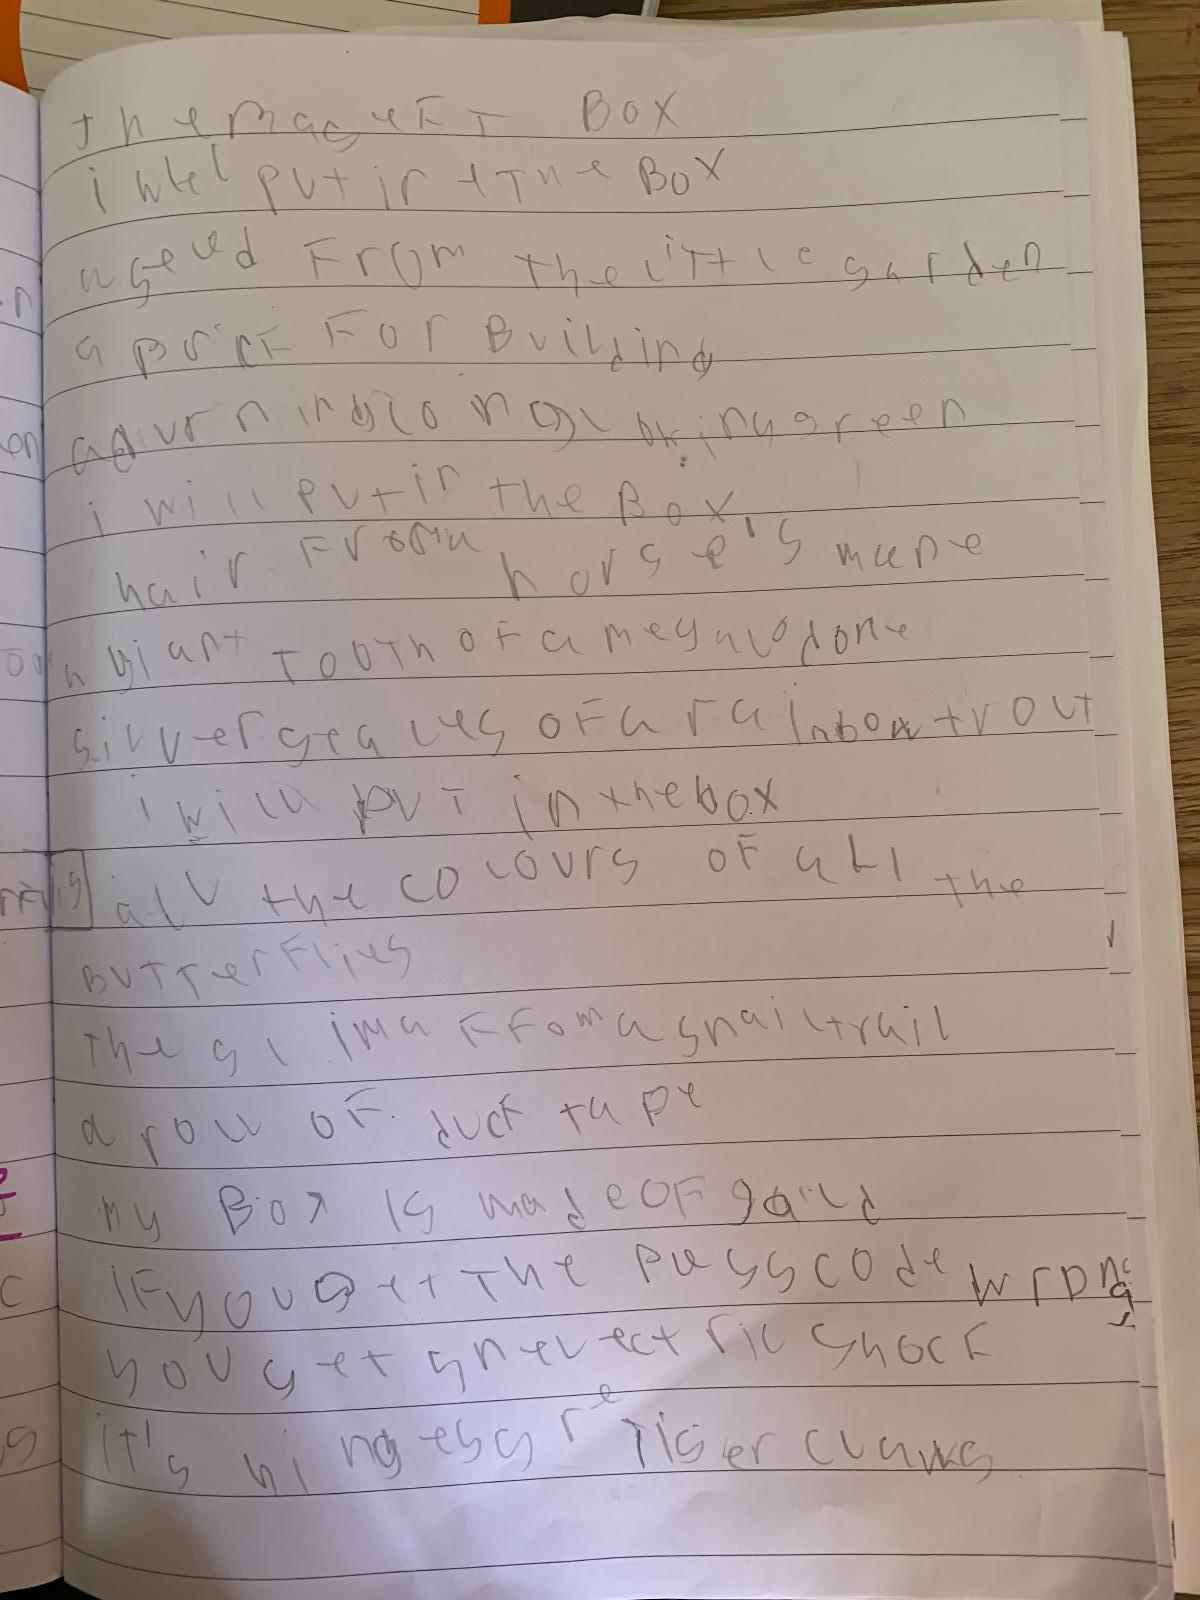 the mageft BOX
i wlel put in the BOX
a seed From the little garden
a Brick For Building
a burning coingl oring green
i will put in the BOX
hair From a horse's mane
a giant TOOTH OF a megalodone
silver scales OF a rainbow trout
i will put in the box
all the colours OF all the
BUTTerFlies
The slima F From a snail trail
a roll OF duck tape
my Box is made OF gould
IF you get The passcode wrong
you get an electric shock
iT's hinges are Tiger claws